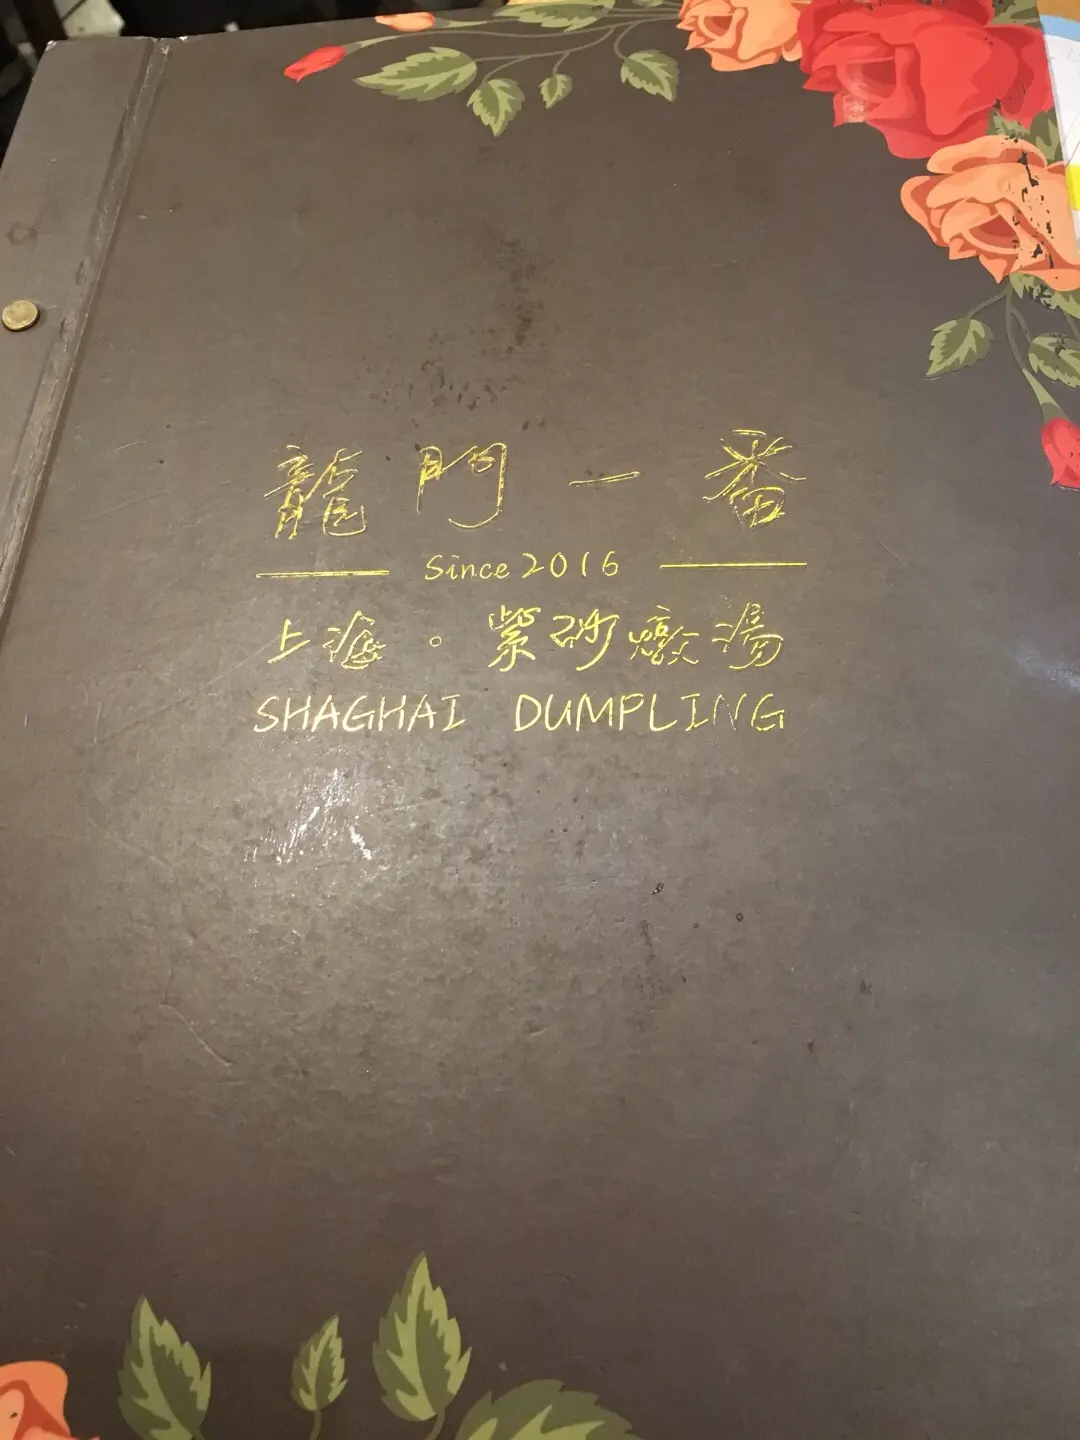 龍門一番
Since 2016
上海。紫砂燉湯
SHAGHAI DUMPLING